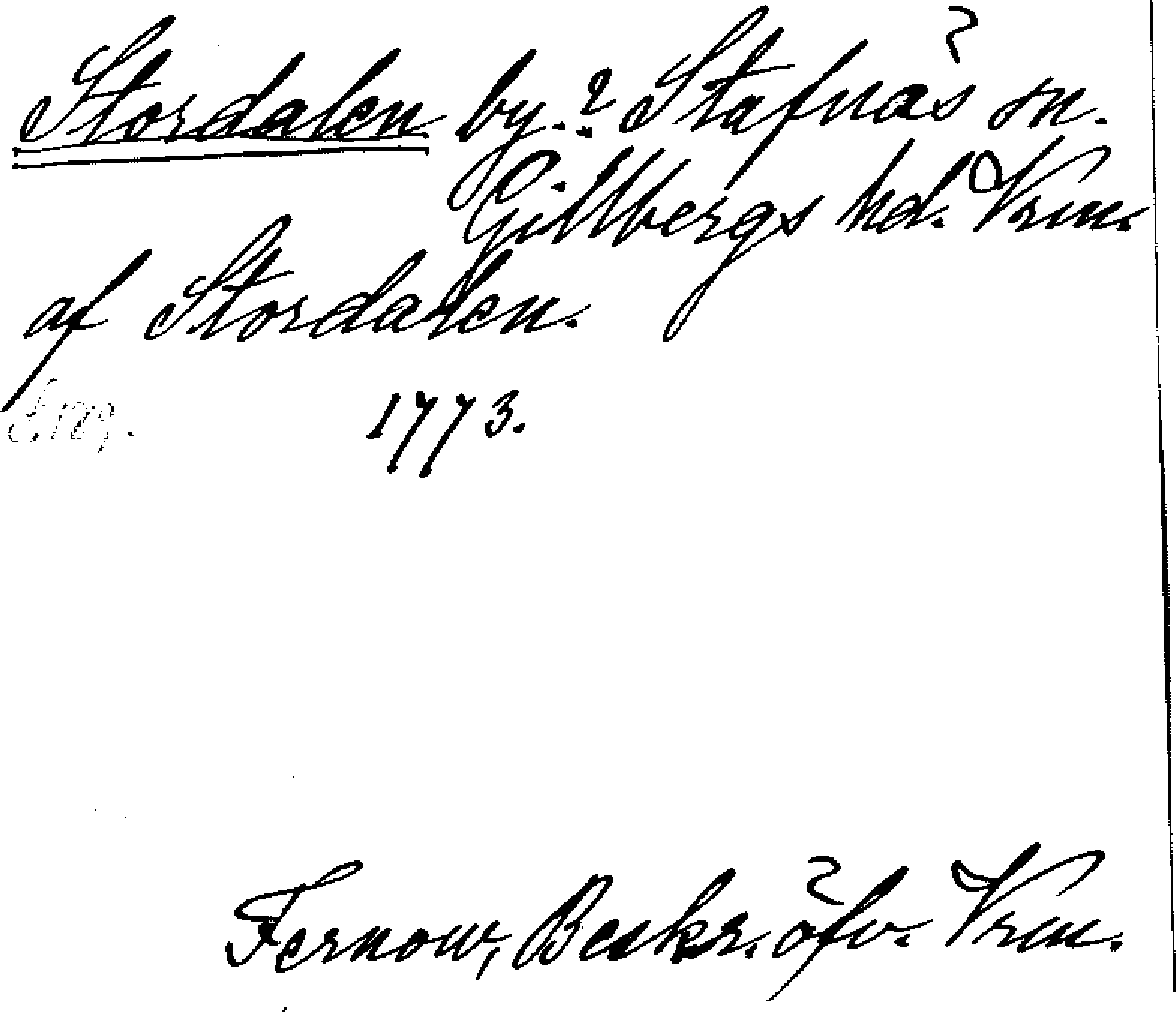 Stordalen by.? Stafnäs sn.
Gillbergs hd. Vrm.
af Stordalen.
1773.
Fernow, Beskr. öfv. Vrm.